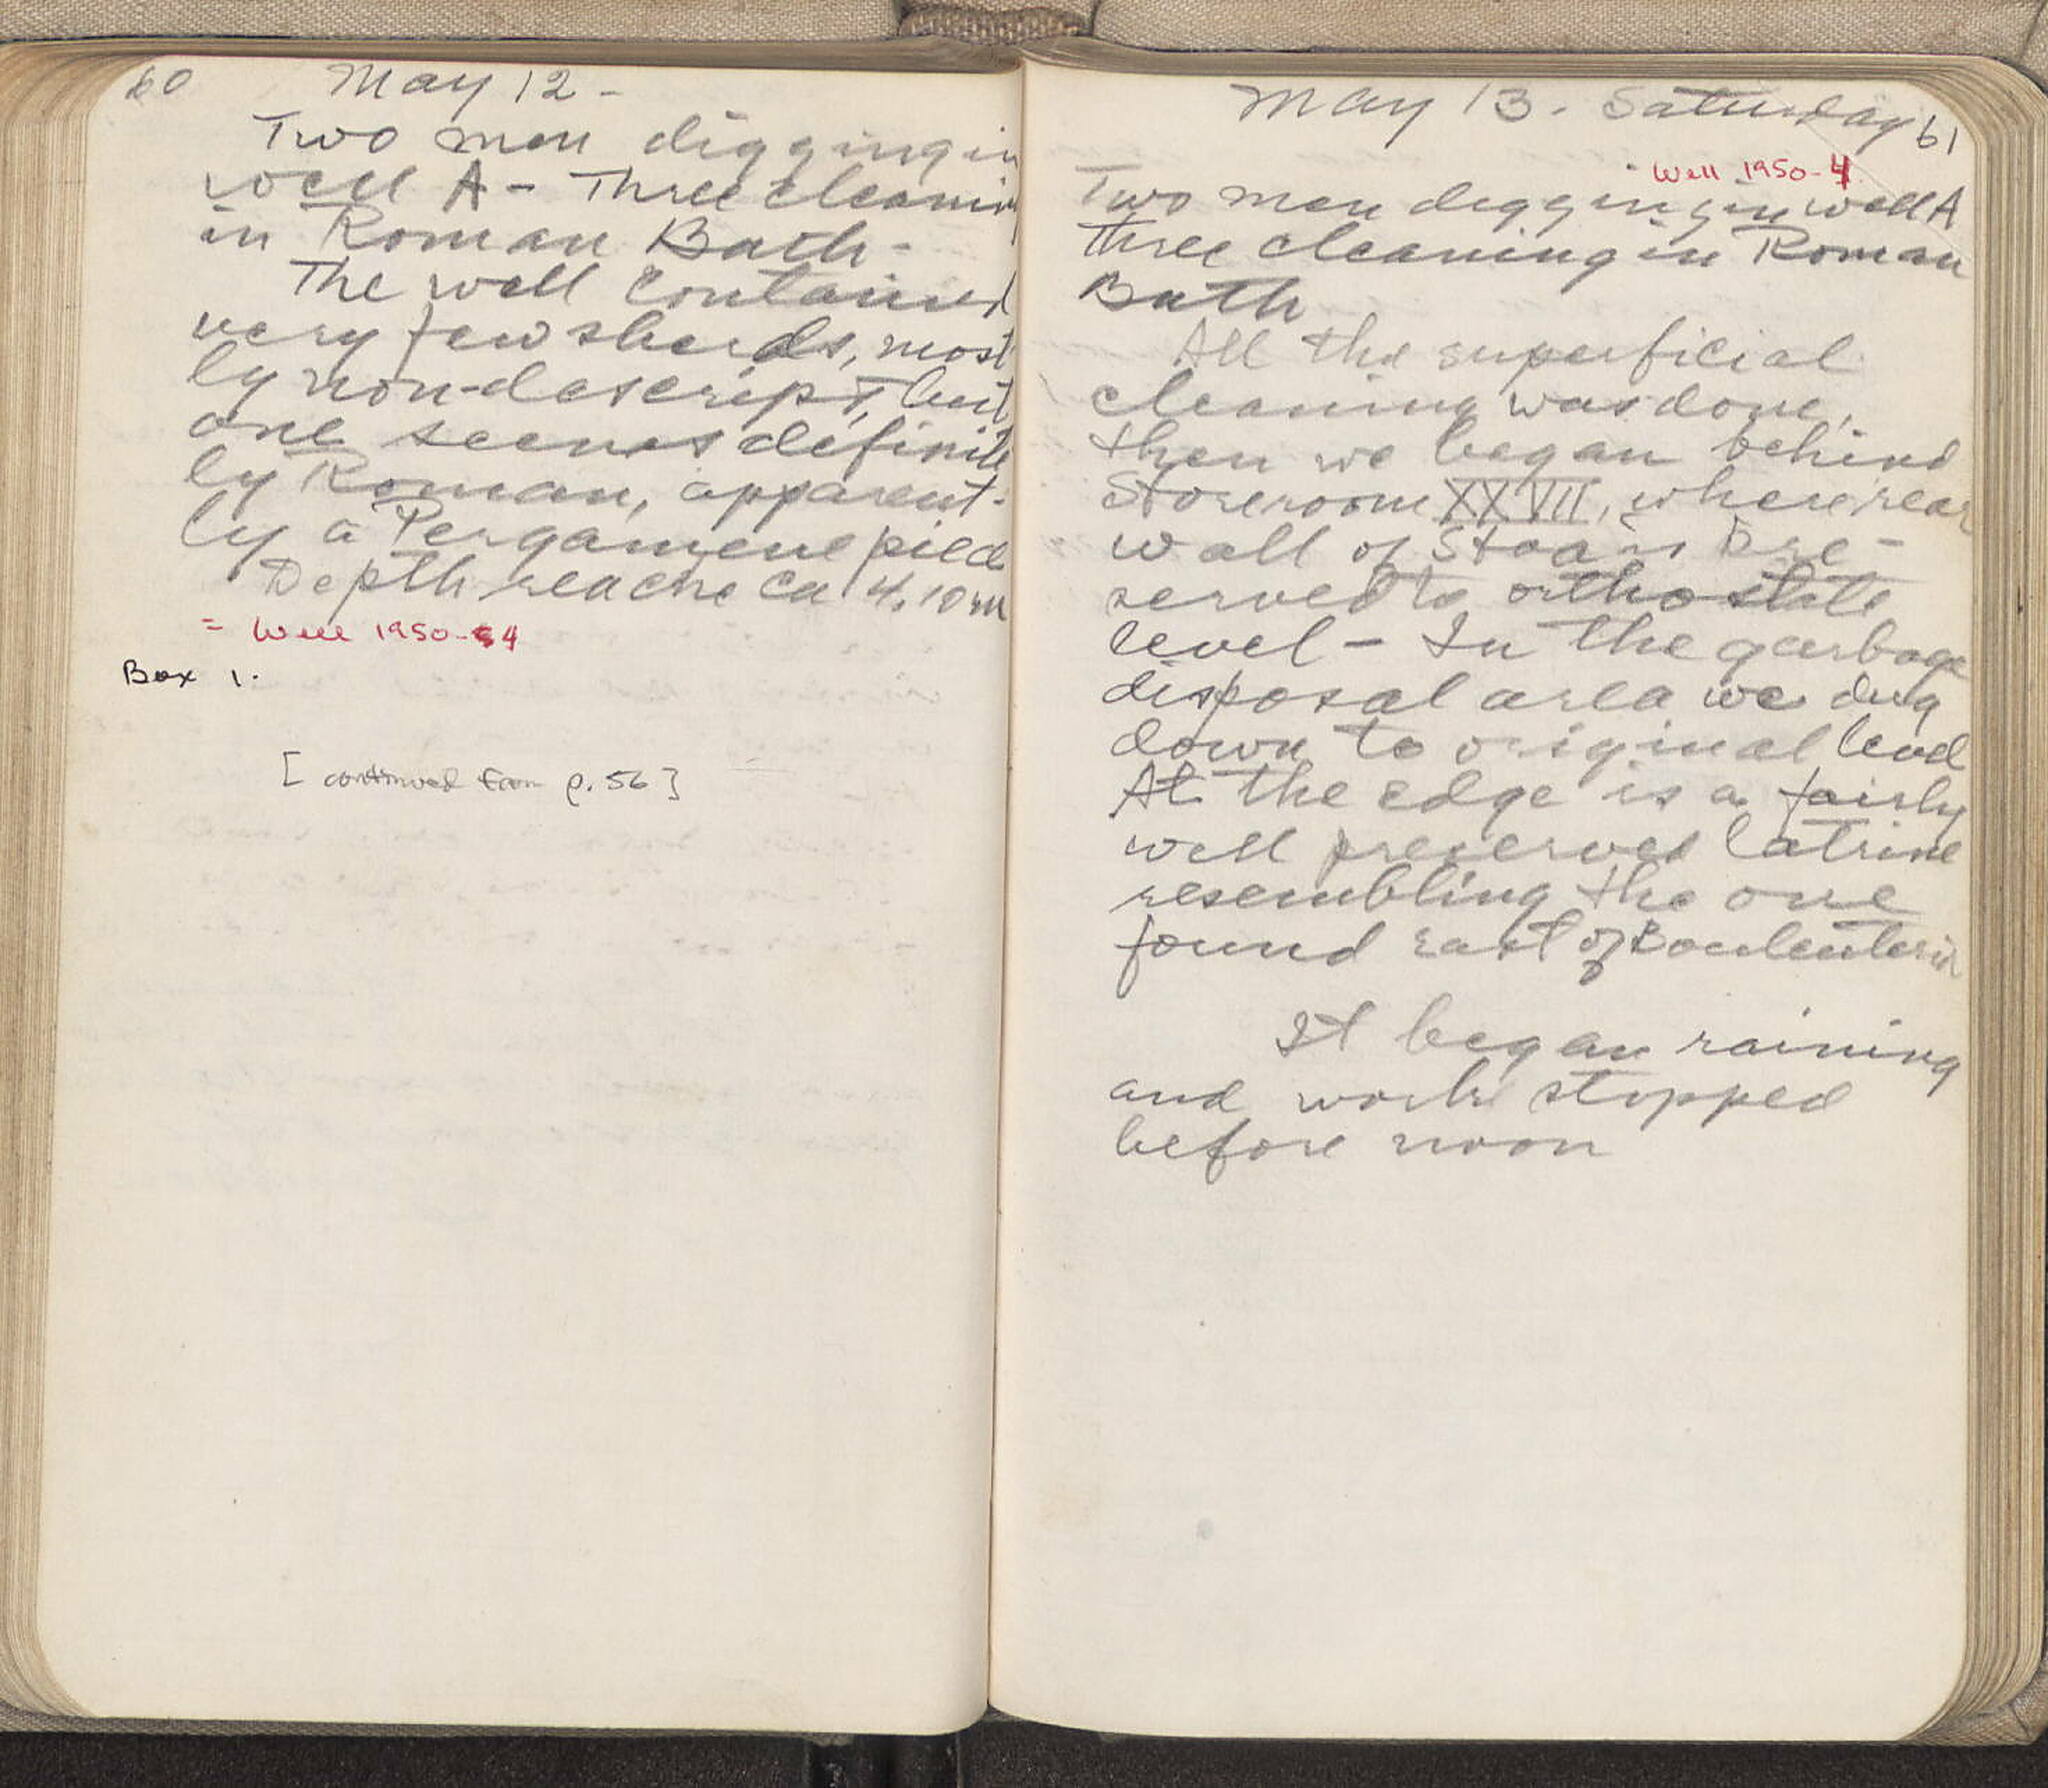 60 May 12 -
Two men digging in
well A - Three cleaning
in Roman Bath -
The well contained
very few sherds, most
ly non-descript, but
one seems definite
ly Roman, apparent-
ly a Pergamene piece
Depth reache ca 4.10 m
= Well 1950-4
Box 1.
[continued from p. 56]
May 13. Saturday 61
Well 1950-4
Two men digging in well A
three cleaning in Roman
Bath
All the superficial
cleaning was done,
then we began behind
Storeroom XXVII, where rear
wall of Stoa is pre-
served to orthostate
level - In the garbage
disposal area we dug
down to original level
At the edge is a fairly
well preserved latrine
resembling the one
found east of Bouleuterion
It began raining
and work stopped
before noon